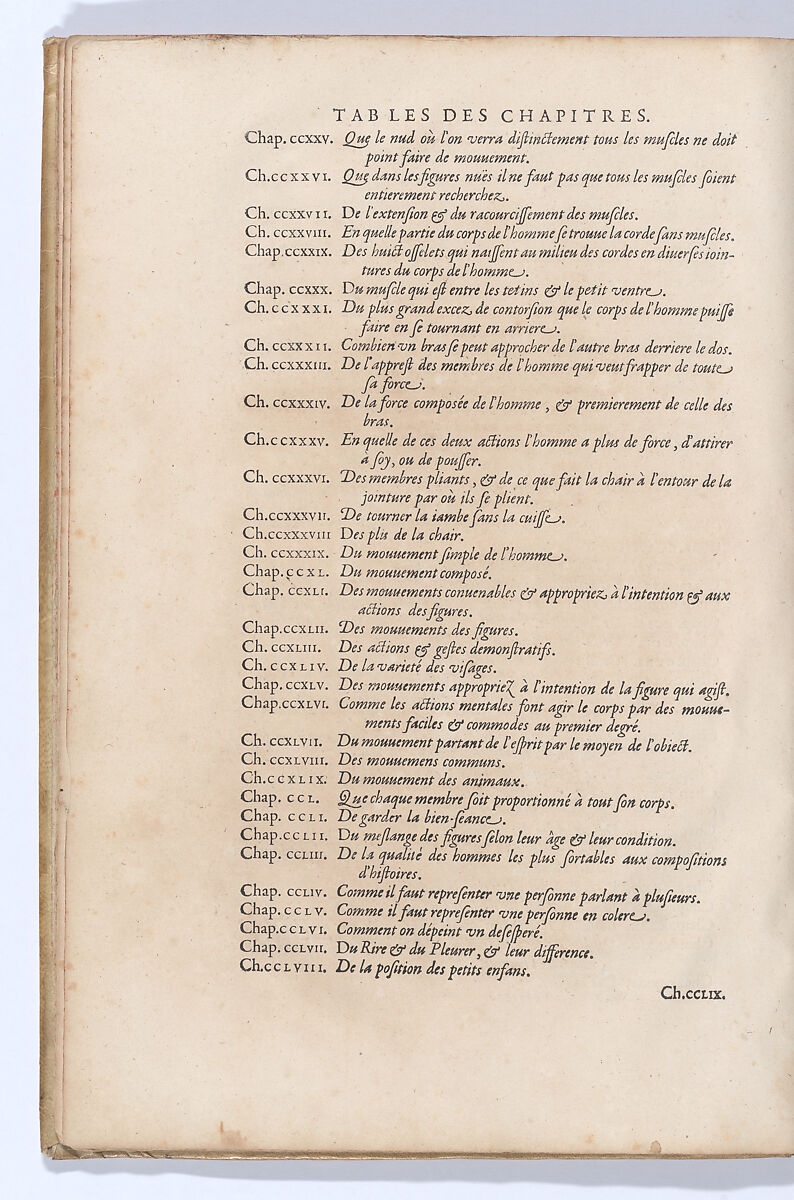 TABLES DES CHAPITRES.
Chap. CCXXV. Que le nud où l'on verra diſtinctement tous les muſcles ne doit
point faire de mouuement.
Ch. CCXXVI. Que dans les figures nuës il ne faut pas que tous les muſcles ſoient
entierement recherchez.
Ch. CCXXVII. De l'extenſion & du racourciſſement des muſcles.
Ch. CCXXVIII. En quelle partie du corps de l'homme ſe trouue la corde ſans muſcles.
Chap. CCXXIX. Des huict oſſelets qui naiſſent au milieu des cordes en diuerſes ioin-
tures du corps de l'homme.
Chap. CCXXX. Du muſcle qui eſt entre les tetins & le petit ventre.
Ch. CCXXXI. Du plus grand excez de contorſion que le corps de l'homme puiſſe
faire en ſe tournant en arriere.
Ch. CCXXXII. Combien vn bras ſe peut approcher de l'autre bras derriere le dos.
Ch. CCXXXIII. De l'appreſt des membres de l'homme qui veut frapper de toute
ſa force.
Ch. CCXXXIV. De la force composée de l'homme, & premierement de celle des
bras.
Ch. CCXXXV. En quelle de ces deux actions l'homme a plus de force, d'attirer
à ſoy, ou de pouſſer.
Ch. CCXXXVI. Des membres pliants, & de ce que fait la chair à l'entour de la
jointure par où ils ſe plient.
Ch. CCXXXVII. De tourner la iambe ſans la cuiſſe.
Ch. CCXXXVIII Des plu de la chair.
Ch. CCXXXIX. Du mouuement ſimple de l'homme.
Chap. CCXL. Du mouuement composé.
Chap. CCXLI. Des mouuements conuenables & appropriez à l'intention & aux
actions des figures.
Chap. CCXLII. Des mouuements des figures.
Ch. CCXLIII. Des actions & geſtes demonſtratifs.
Ch. CCXLIV. De la varieté des viſages.
Chap. CCXLV. Des mouuements appropriez à l'intention de la figure qui agiſt.
Chap. CCXLVI. Comme les actions mentales font agir le corps par des mouue-
ments faciles & commodes au premier degré.
Ch. CCXLVII. Du mouuement partant de l'eſprit par le moyen de l'obiect.
Ch. CCXLVIII. Des mouuemens communs.
Ch. CCXLIX. Du mouuement des animaux.
Chap. CCL. Que chaque membre ſoit proportionné à tout ſon corps.
Chap. CCLI. De garder la bien-ſeance.
Chap. CCLII. Du meſlange des figures ſelon leur âge & leur condition.
Chap. CCLIII. De la qualité des hommes les plus ſortables aux compoſitions
d'hiſtoires.
Chap. CCLIV. Comme il faut repreſenter vne perſonne parlant à pluſieurs.
Chap. CCLV. Comme il faut repreſenter vne perſonne en colere.
Chap. CCLVI. Comment on dépeint vn deſeſperé.
Chap. CCLVII. Du Rire & du Pleurer, & leur difference.
Ch. CCLVIII. De la poſition des petits enfans.
Ch. CCLIX.